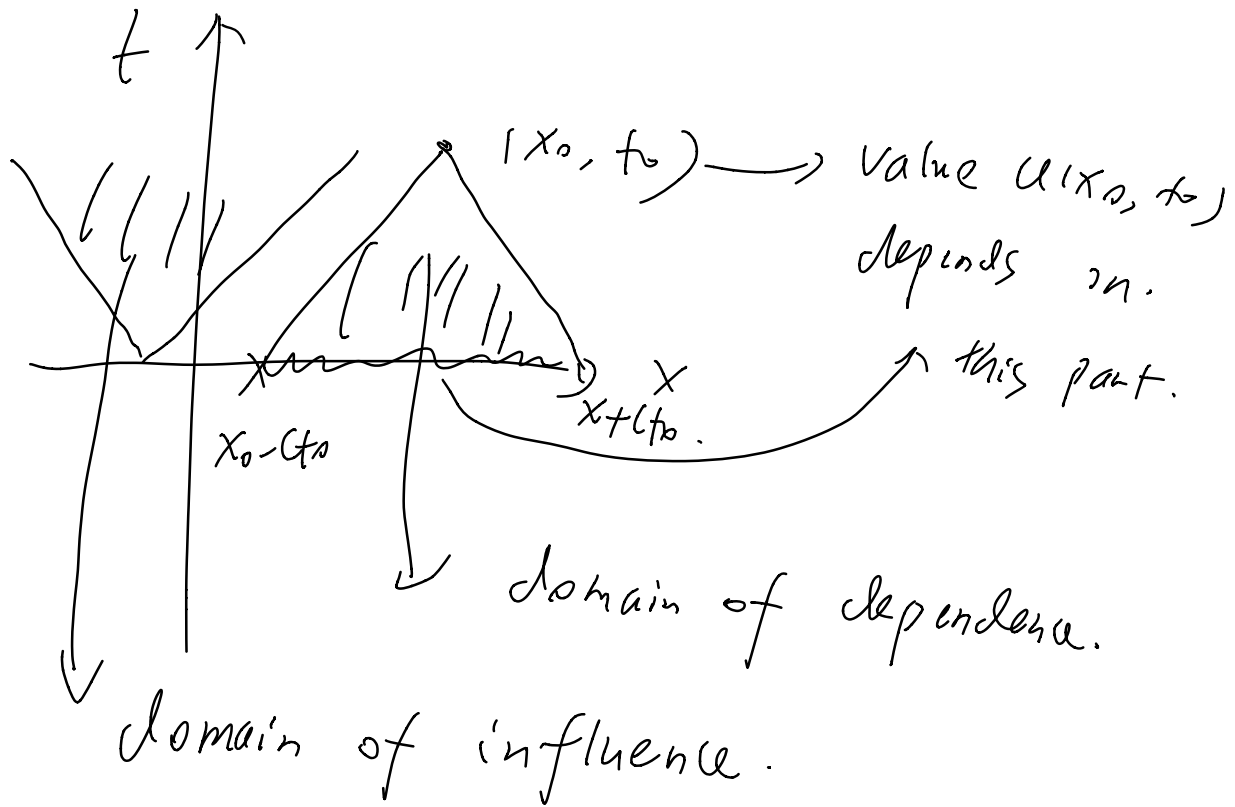 t
(x₀, t₀) → value u(x₀, t₀)
depends on.
this part.
x
x₀-ct₀
x+ct₀.
domain of dependence.
domain of influence.